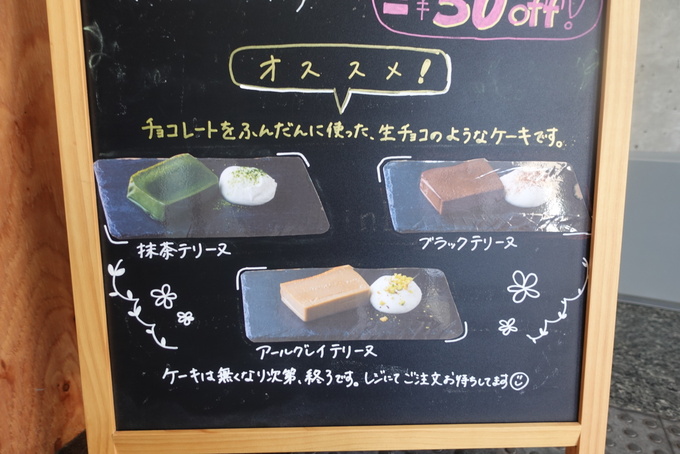 -¥50off!
オススメ!
チョコレートをふんだんに使った、生チョコのようなケーキです。
抹茶テリーヌ
ブラックテリーヌ
アールグレイテリーヌ
ケーキは無くなり次第、終了です。レジにてご注文お待ちしてます☺